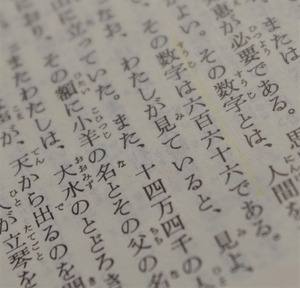 または
恵が必要である。思
がよい。その数字とは、人間を
その数字は六百六十六である。
なお、わたしが見ていると、見よ、
に立っていた。また、十四万四千の人
におり、その額に小羊の名とその父の名
またわたしは、大水のとどろき
が、天から出るのを聞
人が立琴を